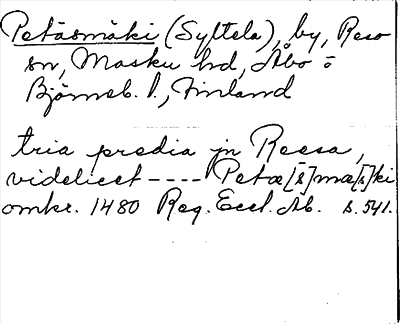 Petäsmäki (Syltela), by, Reso
sn, Masku hd, Åbo o
Björneb. l., Finland
tria predia in Reesa,
videlicet ---- Petæ[s]mæ[s]ki
omkr. 1480 Reg. Eccl. Ab. s. 541.